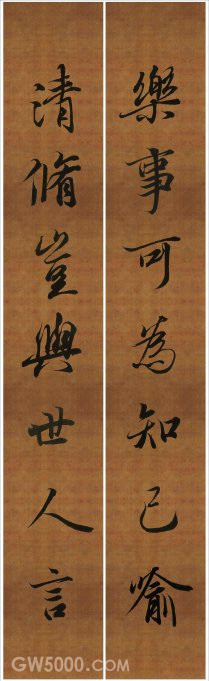 樂事可為知己喻
清脩豈與世人言
GW5000.com